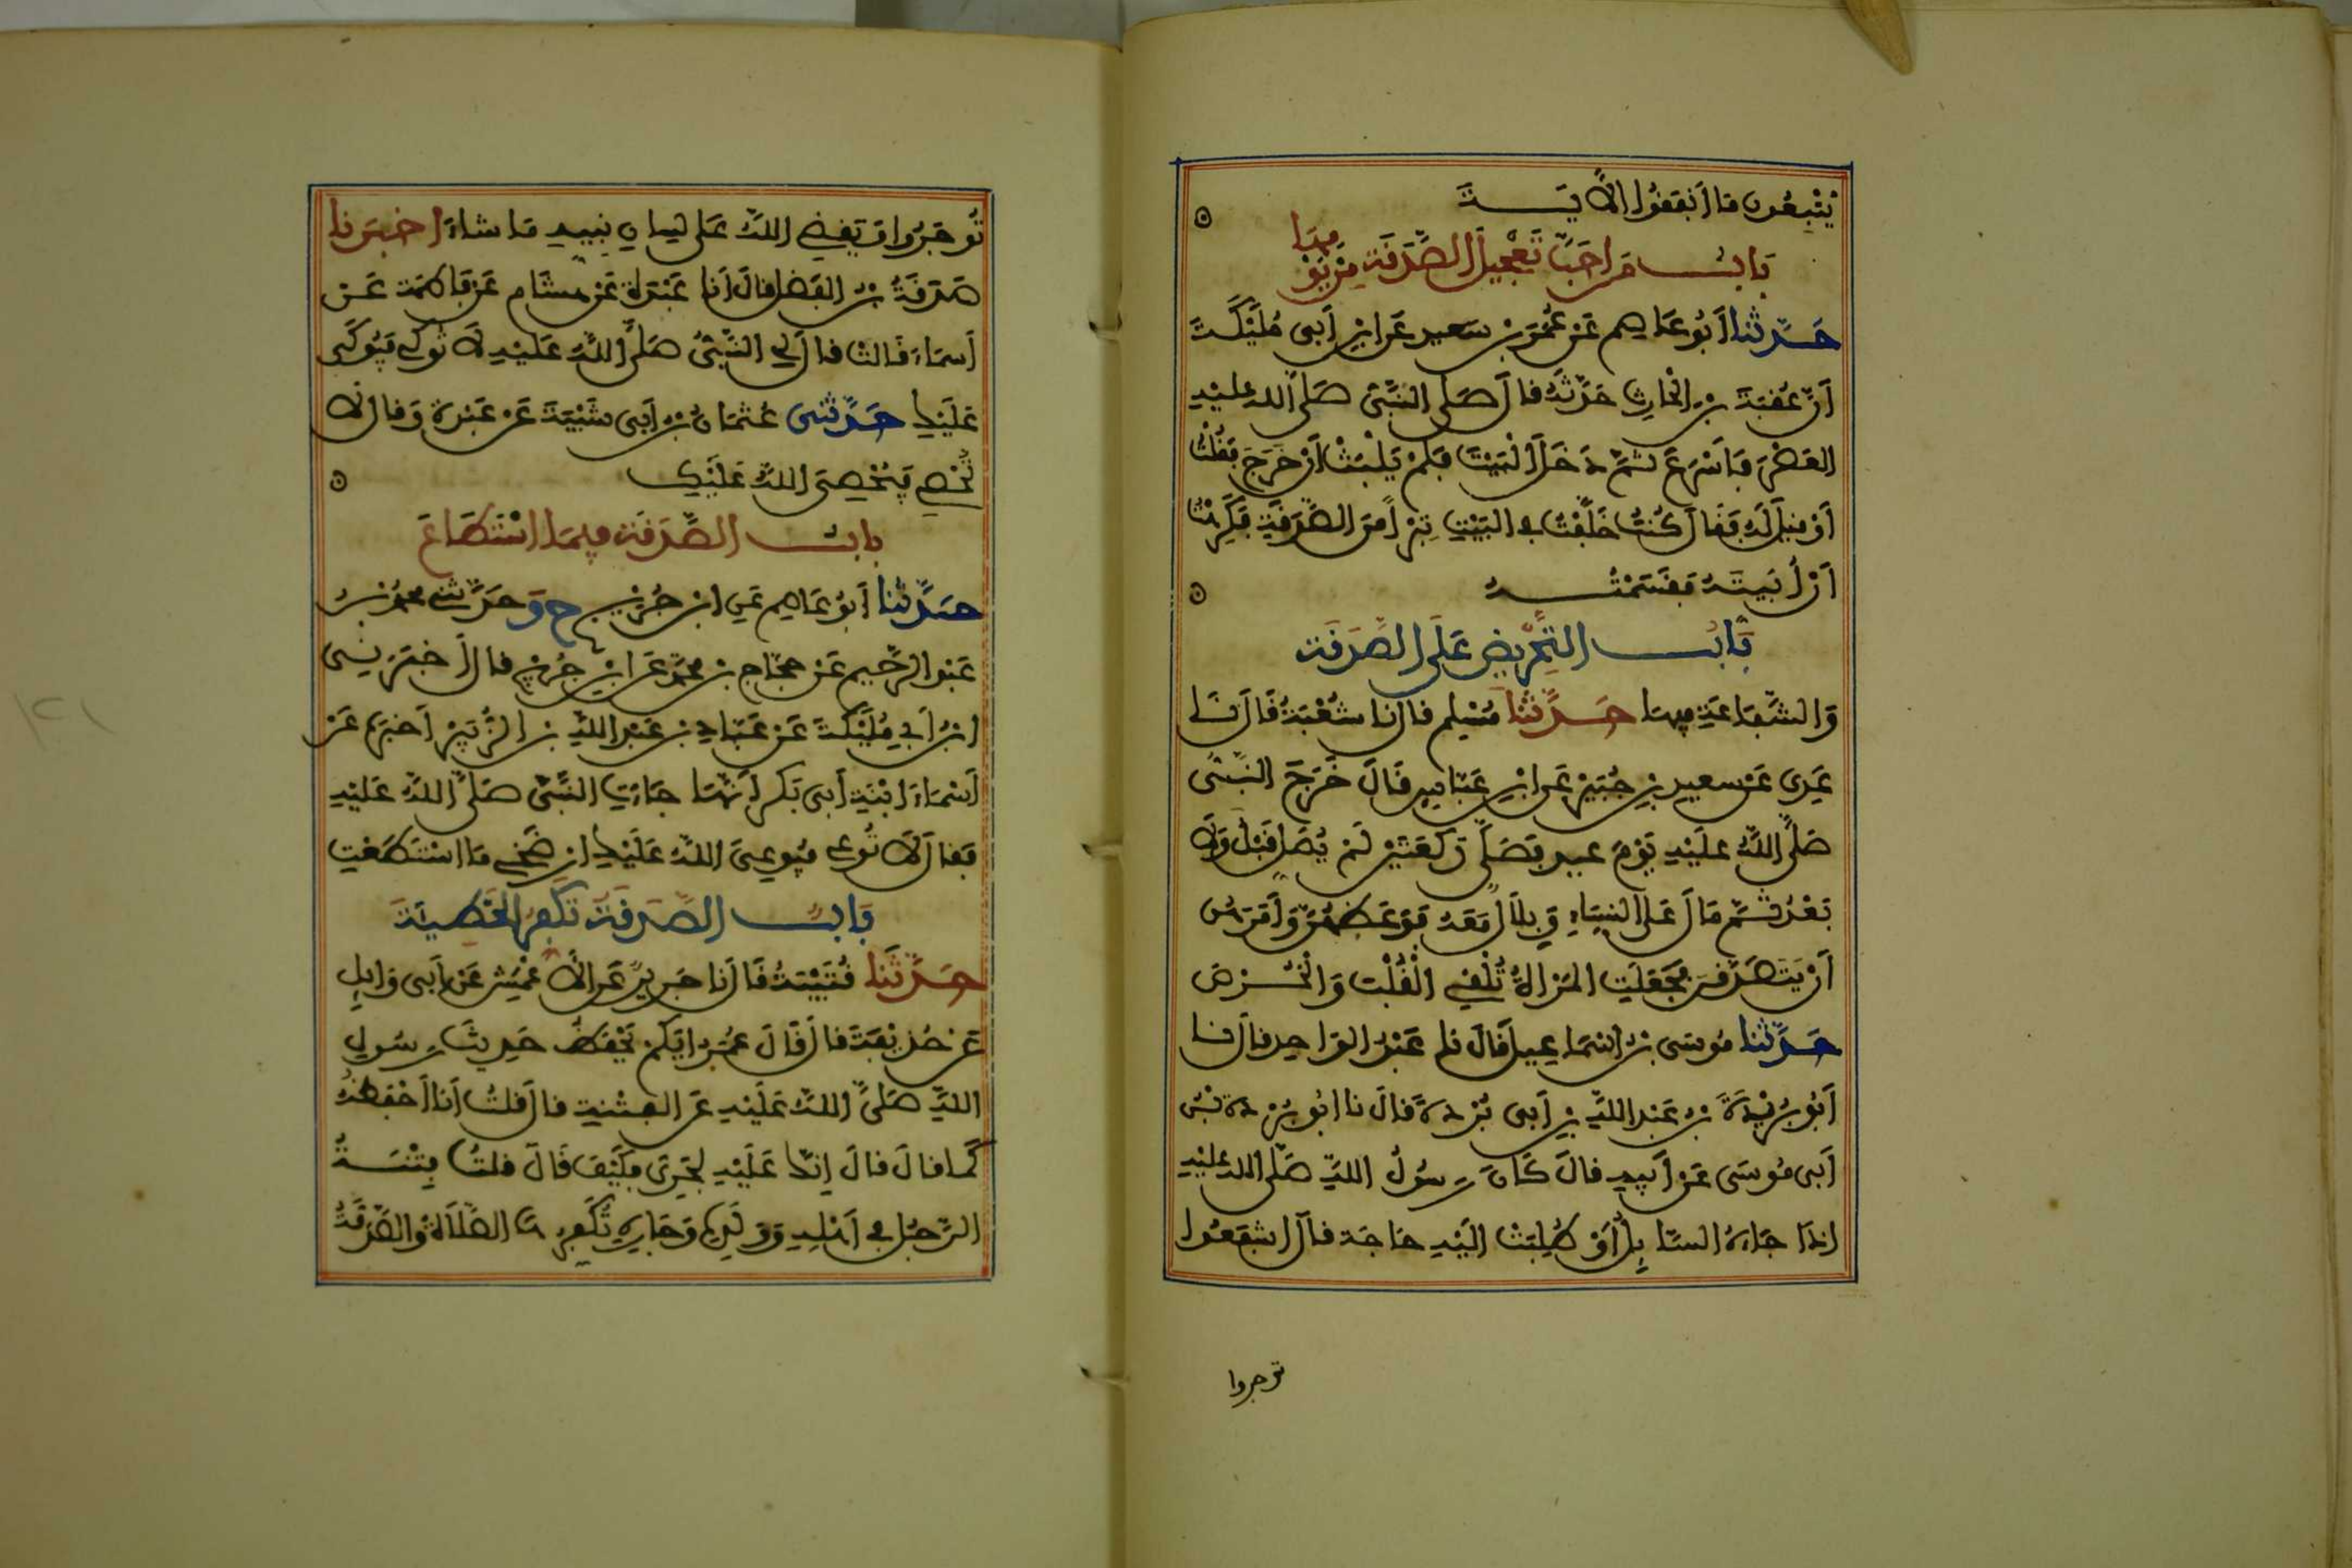 يُتْبِعُونَ مَا أَنفَقُوا الْآيَـــةَ
بَابُ مَنْ أَحَبَّ تَعْجِيلَ الصَّدَقَةِ مِنْ يَوْمِهَا
حَدَّثَنَا أَبُو عَاصِمٍ عَنْ عُمَرَ بْنِ سَعِيدٍ عَنِ ابْنِ أَبِى مُلَيْكَةَ
أَنَّ عُقْبَةَ بْنَ الْحَارِثِ حَدَّثَهُ قَالَ صَلَّى النَّبِىُّ صَلَّى اللهُ عَلَيْهِ
الْعَصْرَ فَأَسْرَعَ ثُمَّ دَخَلَ الْبَيْتَ فَلَمْ يَلْبَثْ أَنْ خَرَجَ فَقُلْتُ
أَوْ قِيلَ لَهُ فَقَالَ كُنْتُ خَلَّفْتُ فِى الْبَيْتِ تِبْرًا مِنَ الصَّدَقَةِ فَكَرِهْتُ
أَنْ أُبَيِّتَهُ فَقَسَمْتُـــهُ
بَابُ التَّحْرِيضِ عَلَى الصَّدَقَةِ
وَالشَّفَاعَةِ فِيهَا حَدَّثَنَا مُسْلِمٌ قَالَ نَا شُعْبَةُ قَالَ نَا
عَدِيٌّ عَنْ سَعِيدِ بْنِ جُبَيْرٍ عَنِ ابْنِ عَبَّاسٍ قَالَ خَرَجَ النَّبِىُّ
صَلَّى اللهُ عَلَيْهِ يَوْمَ عِيدٍ فَصَلَّى رَكْعَتَيْنِ لَمْ يُصَلِّ قَبْلُ وَلَا
بَعْدُ ثُمَّ مَالَ عَلَى النِّسَاءِ وَبِلَالٌ مَعَهُ فَوَعَظَهُنَّ وَأَمَرَهُنَّ
أَنْ يَتَصَدَّقْنَ فَجَعَلَتِ الْمَرْأَةُ تُلْقِي الْقُلْبَ وَالْخُرْصَ
حَدَّثَنَا مُوسَى بْنُ إِسْمَاعِيلَ قَالَ نَا عَبْدُ الْوَاحِدِ قَالَ نَا
أَبُو بُرَيْدَةَ بْنُ عَبْدِ اللهِ بْنِ أَبِى بُرْدَةَ قَالَ نَا أَبُو بُرْدَةَ بْنُ
أَبِى مُوسَى عَنْ أَبِيهِ قَالَ كَانَ رَسُولُ اللهِ صَلَّى اللهُ عَلَيْهِ
إِذَا جَاءَهُ السَّائِلُ أَوْ طُلِبَتْ إِلَيْهِ حَاجَةٌ قَالَ اشْفَعُوا
توجروا
تُوجَرُوا وَيَقْضِي اللهُ عَلَى لِسَانِ نَبِيِّهِ مَا شَاءَ أَخْبَرَنَا
صَدَقَةُ بْنُ الْفَضْلِ قَالَ أَنَا عَبْدَةُ عَنْ هِشَامٍ عَنْ فَاطِمَةَ عَنْ
أَسْمَاءَ قَالَتْ قَالَ لِي النَّبِىُّ صَلَّى اللهُ عَلَيْهِ لَا تُوكِي فَيُوكَى
عَلَيْكِ حَدَّثَنِى عُثْمَانُ بْنُ أَبِى شَيْبَةَ عَنْ عَبْدَةَ وَقَالَ لَا
تُحْصِي فَيُحْصِيَ اللهُ عَلَيْكِ
بَابُ الصَّدَقَةِ فِيمَا اسْتَطَاعَ
حَدَّثَنَا أَبُو عَاصِمٍ عَنِ ابْنِ جُرَيْجٍ ح وَحَدَّثَنِي مُحَمَّدُ بْنُ
عَبْدِ الرَّحِيمِ عَنْ حَجَّاجِ بْنِ مُحَمَّدٍ عَنِ ابْنِ جُرَيْجٍ قَالَ أَخْبَرَنِى
ابْنُ أَبِي مُلَيْكَةَ عَنْ عَبَّادِ بْنِ عَبْدِ اللهِ بْنِ الزُّبَيْرِ أَخْبَرَهُ عَنْ
أَسْمَاءَ ابْنَةِ أَبِى بَكْرٍ أَنَّهَا جَاءَتِ النَّبِىَّ صَلَّى اللهُ عَلَيْهِ
فَقَالَ لَا تُوعِي فَيُوعِيَ اللهُ عَلَيْكِ ارْضَخِي مَا اسْتَطَعْتِ
بَابُ الصَّدَقَةِ تُكَفِّرُ الْخَطِيئَةَ
حَدَّثَنَا قُتَيْبَةُ قَالَ نَا جَرِيرٌ عَنِ الْأَعْمَشِ عَنْ أَبِى وَائِلٍ
عَنْ حُذَيْفَةَ قَالَ قَالَ عُمَرُ أَيُّكُمْ يَحْفَظُ حَدِيثَ رَسُولِ
اللهِ صَلَّى اللهُ عَلَيْهِ عَنِ الْفِتْنَةِ قَالَ قُلْتُ أَنَا أَحْفَظُهُ
كَمَا قَالَ قَالَ إِنَّكَ عَلَيْهِ لَجَرِيءٌ فَكَيْفَ قَالَ قُلْتُ فِتْنَـــةُ
الرَّجُلِ فِي أَهْلِهِ وَوَلَدِهِ وَجَارِهِ تُكَفِّرُهَا الصَّلَاةُ وَالصَّدَقَةُ